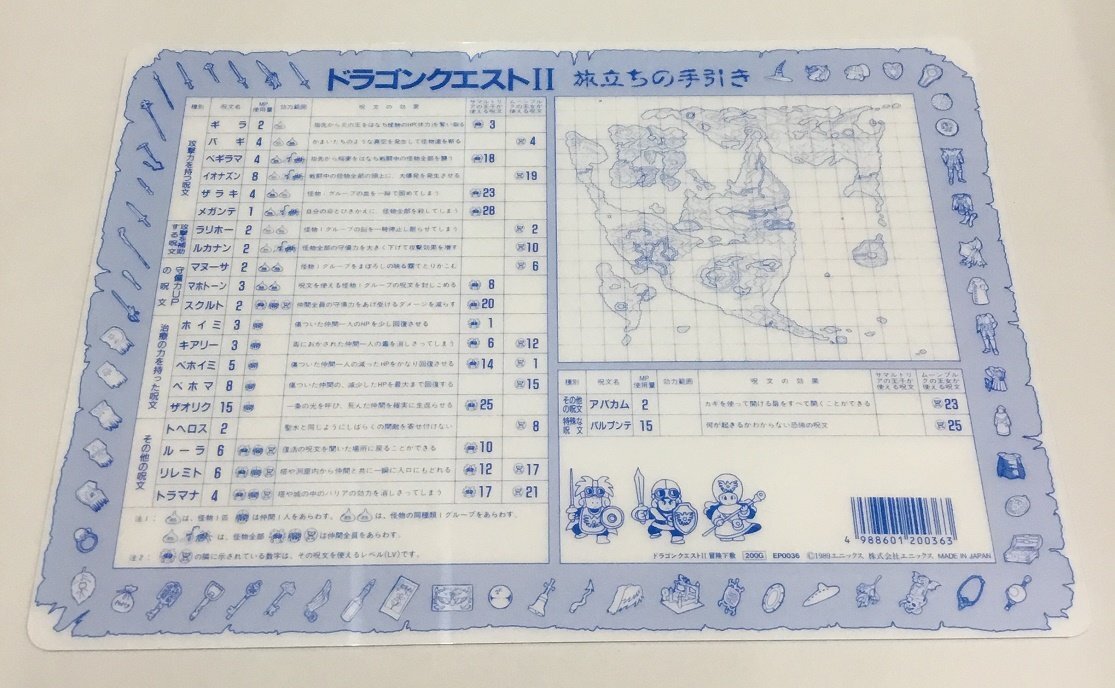 ドラゴンクエストII 旅立ちの手引き
種別 呪文名 MP使用量 効力範囲 呪文の効果 サマルトリアの王子が使える呪文 ムーンブルクの王女が使える呪文
攻撃力を持つ呪文
ギラ 2 3
バギ 4 かまいたちのような真空を発生して怪物達を斬る 4
ベギラマ 4 18
イオナズン 8 戦闘中の怪物全部の頭上に、大爆発を発生させる 19
ザラキ 4 怪物1グループの血を一瞬で固めてしまう 23
メガンテ 1 自分の命とひきかえに 怪物全部を殺してしまう 28
攻撃を補助する呪文
ラリホー 2 怪物1グループの脳を一時停止し眠らせてしまう 2
ルカナン 2 怪物全部の守備力を大きく下げて攻撃効果を増す 10
守備力UPの呪文
マヌーサ 2 怪物1グループをまぼろしの映る霧でとりかこむ 6
マホトーン 3 呪文を使える怪物1グループの呪文を封じこめる 8
スクルト 2 仲間全員の守備力をあげ受けるダメージを減らす 20
治療の力を持った呪文
ホイミ 3 傷ついた仲間一人のHPを少し回復させる 1
キアリー 3 毒におかされた仲間一人の毒を消しさってしまう 6 12
ベホイミ 5 傷ついた仲間一人の減ったHPをかなり回復させる 14 1
ベホマ 8 傷ついた仲間の、減少したHPを最大まで回復する 15
ザオリク 15 一条の光を呼び、死んだ仲間を確実に生返らせる 25
その他の呪文
トヘロス 2 聖水と同じようにしばらくの間敵を寄せ付けない 8
ルーラ 6 復活の呪文を聞いた場所に戻ることができる 10
リレミト 6 塔や洞窟内から仲間と共に一瞬に入口にもどれる 12 17
トラマナ 4 塔や城の中のバリアの効力を消しさってしまう 17 21
注1: は、怪物1匹 は仲間1人をあらわす。 は、怪物の同種類1グループをあらわす。
は、怪物全部 は仲間全員をあらわす。
注2: の隣に示されている数字は、その呪文を使えるレベル(LV)です。
種別 呪文名 MP使用量 効力範囲 呪文の効果 サマルトリアの王子が使える呪文 ムーンブルクの王女が使える呪文
その他の呪文 アバカム 2 カギを使って開ける扉をすべて開くことができる 23
特殊な呪文 パルプンテ 15 何が起きるかわからない恐怖の呪文 25
4 988601 200363
ドラゴンクエストII 冒険下敷 200G EP0036 ©1989エニックス 株式会社エニックス MADE IN JAPAN